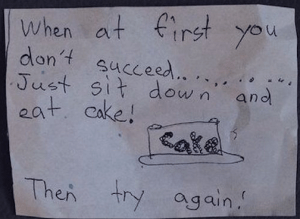 When at first you
don't succeed..............
Just sit down and
eat cake!
Cake
Then try again!